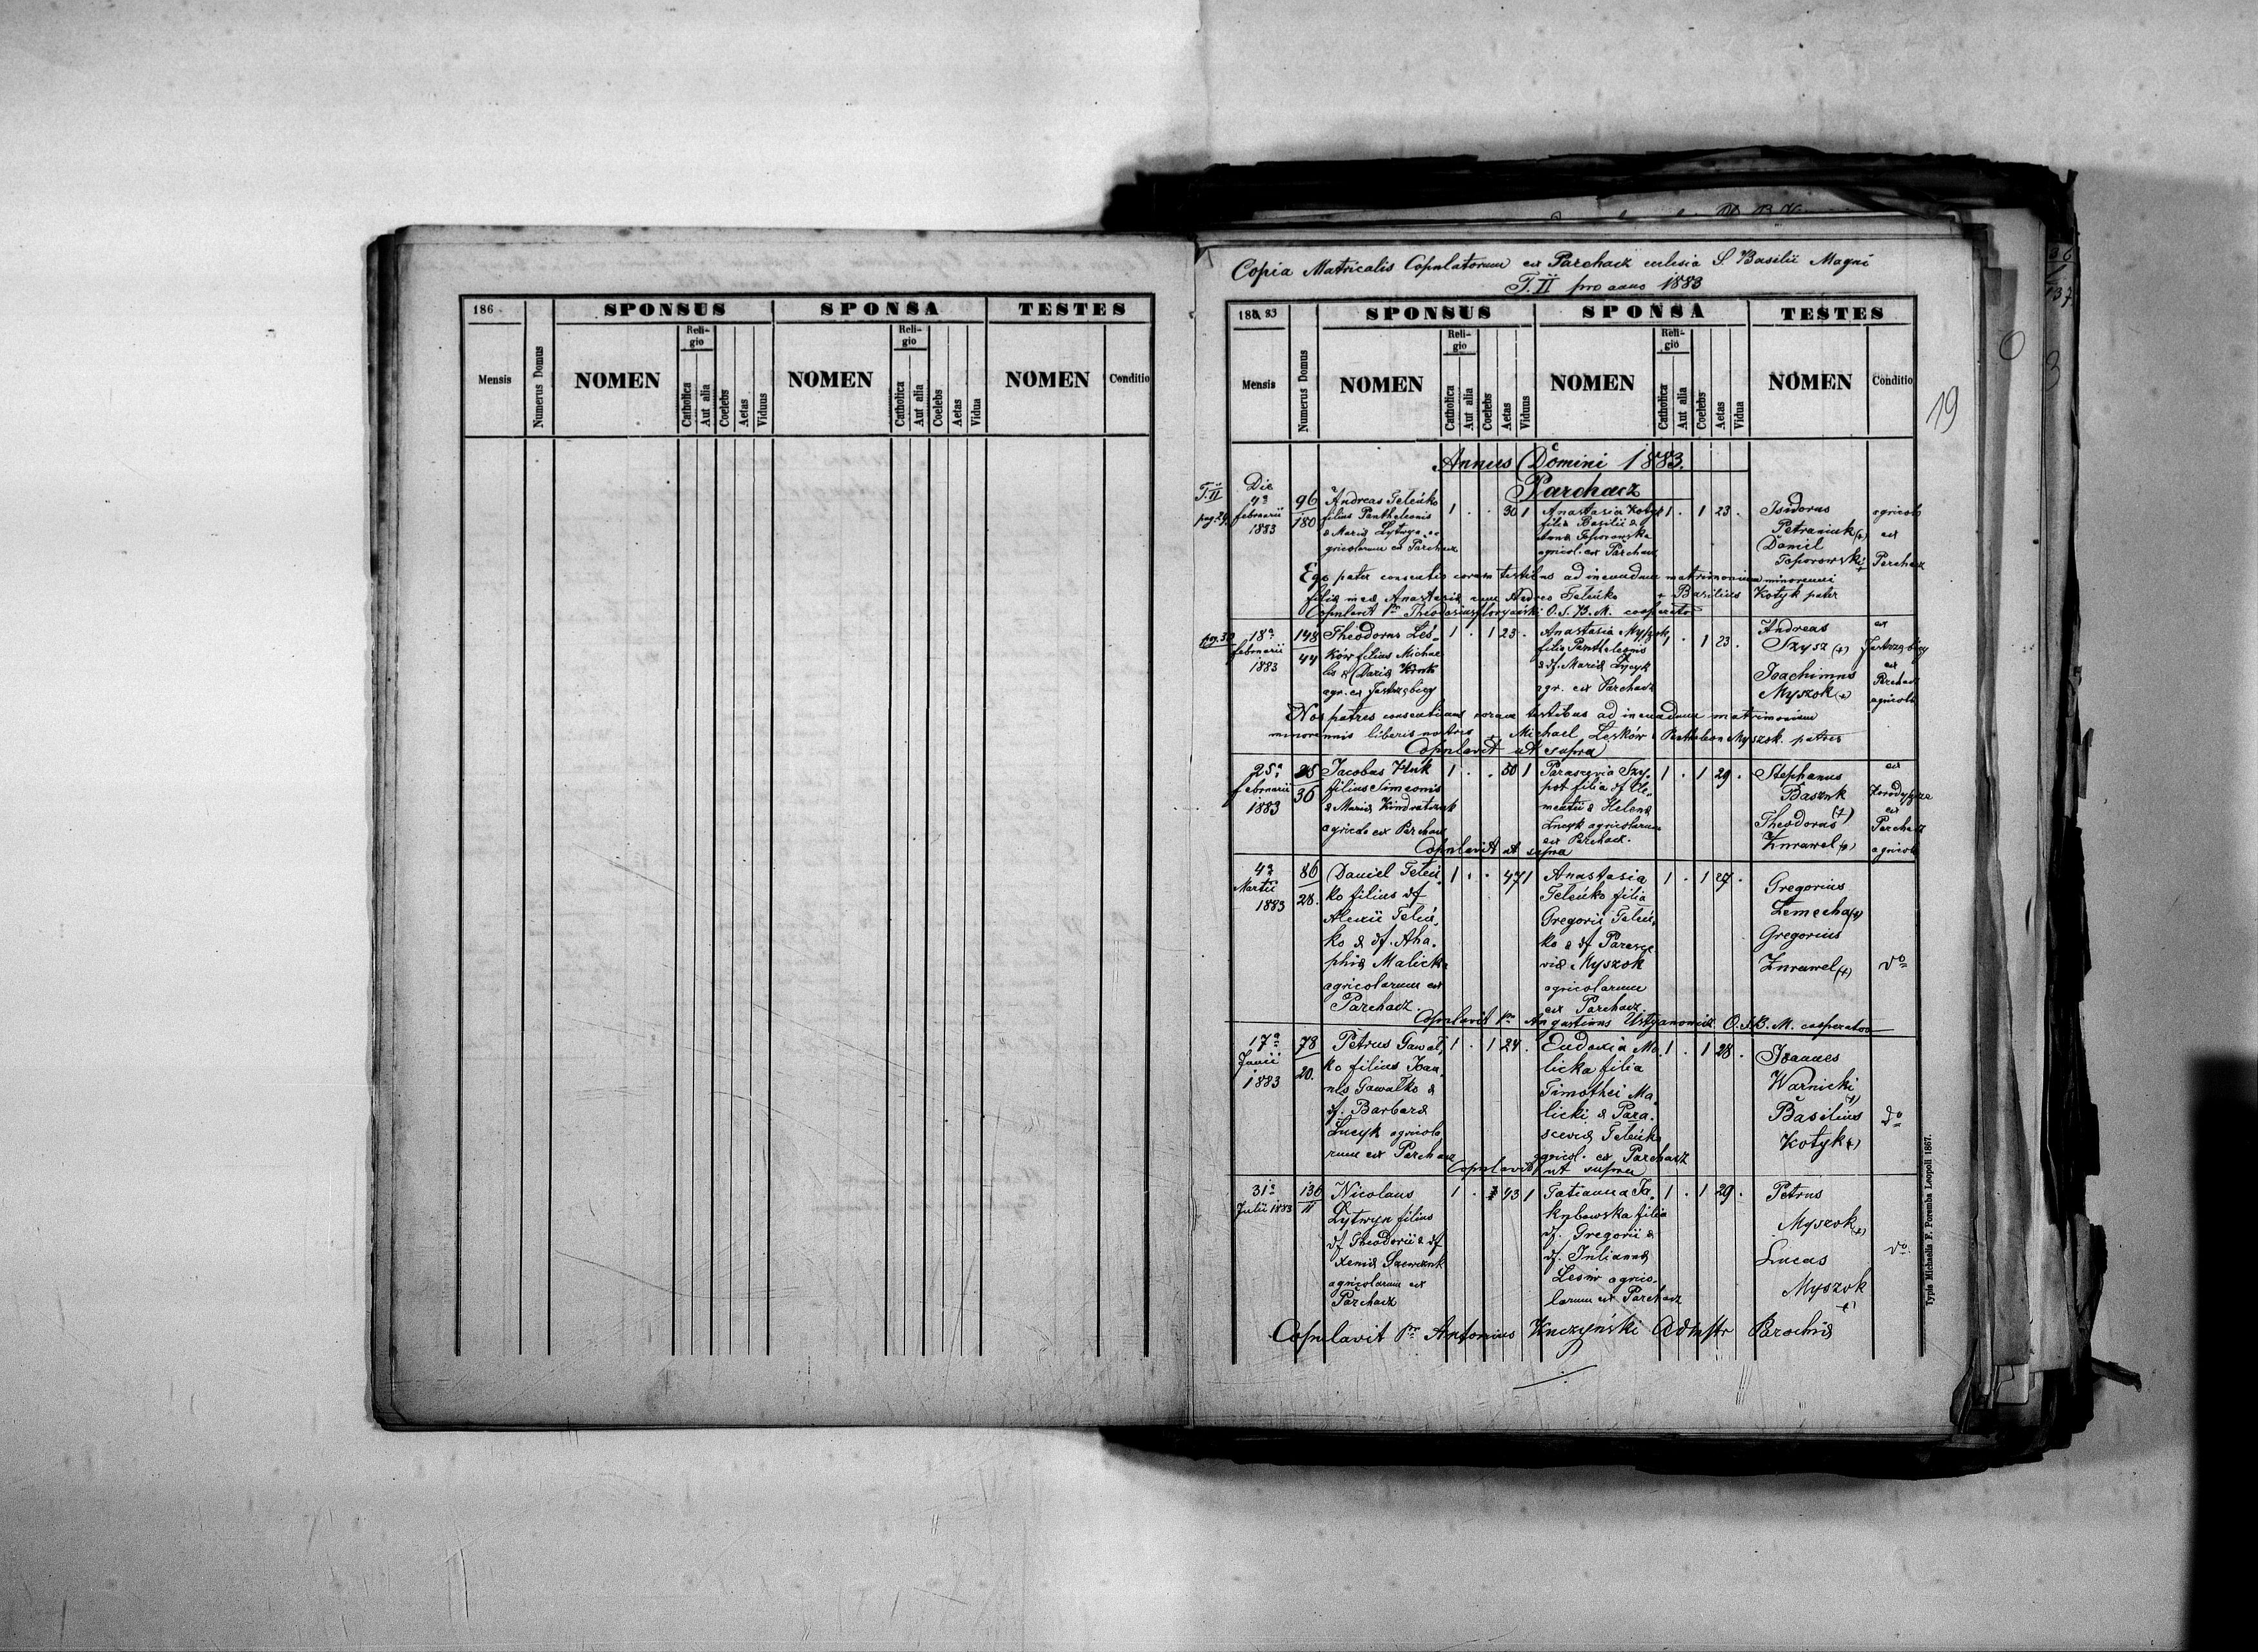 186
SPONSUS
SPONSA
TESTES
Mensis
Numerus Domus
NOMEN
Religio
Catholica
Aut alia
Coelebs
Aetas
Viduus
NOMEN
Religio
Catholica
Aut alia
Coelebs
Aetas
Vidua
NOMEN
Conditio
Copia Matricalis Copulatorum ex Parchacz ecclesia S. Basilii Magni
T. II pro anno 1883
19
186 83
SPONSUS
SPONSA
TESTES
Mensis
Numerus Domus
NOMEN
Religio
Catholica
Aut alia
Coelebs
Aetas
Viduus
NOMEN
Religio
Catholica
Aut alia
Coelebs
Aetas
Vidua
NOMEN
Conditio
Annus Domini 1883.
Parchacz
T. II
pag. 29
Die
4a
februarii
1883
96
180
Andreas Teleńko
filius Pantheleonis
& Maria Lytwyn
gricolarum ex Parchacz
1 . . 30 1
Anastasia Kotyk
filia Basilii &
Anna Toporowska
agricol. ex Parchacz
1 . 1 23 .
Isidorus
Petraniuk (+)
Daniel
Toporowski
+
agricola
ex
Parchacz
Ego pater consentio coram testibus ad ineundum matrimonium minorenni
filia mea Anastasia cum Andrea Teleńko + Basilius Kotyk pater
Copulavit Pr Theodosius O. S. B. M. cooperator
pag. 30
18a
februarii
1883
148
44
Theodorus Leś-
ków filius Michae
lis & Daria Hnuk
agr. ex Jastrzębicy
1 . 1 23 .
Anastasia Myszok
filia Pantheleonis
& df. Maria Łycyk
agr. ex Parchacz
1 . 1 23 .
Andreas
Szysz (+)
Joachimus
Myszok (+)
ex
Jastrzębicy
ex
Parchacz
agricola
Nos patres consentimus coram testibus ad ineundum matrimonium
minorennis liberis nostris + Michael Leśków + Pantheleon Myszok patres
Copulavit ut supra
25a
februarii
1883
25
36
Jacobus Hnuk
filius Simeonis
& Maria Kindratczuk
agricola ex Parchacz
1 . . 50 1
Parascevia Szy-
pot filia df Cle-
mentii & Helena
Łucyk agricolarum
ex Parchacz.
1 . 1 29 .
Stephanus
Basznk
(+)
Theodorus
Żurawel (+)
ex
ex
Parchacz
agricola
Copulavit ut supra
4a
Martii
1883
86
28.
Daniel Teleń-
ko filius df
Alexii Teleń-
ko & df. Aha-
phia Malicka
agricolarum ex
Parchacz.
1 . . 47 1
Anastasia
Teleńko filia
Gregorii Teleń-
ko & df Parasce-
via Myszok
agricolarum
ex Parchacz
1 . 1 27 .
Gregorius
Lemecha (+)
Gregorius
Żurawel (+)
do
Copulavit Pr Augustinus Ustyanowicz O. S. B. M. cooperator
17a
Junii
1883
78
20.
Petrus Gawał-
ko filius Joan-
nis Gawałko &
df. Barbara
Łucyk agricola
rum ex Parchacz
1 . 1 24 .
Eudoxia Ma-
licka filia
Timothei Ma-
licki & Para-
scevia Teleńko
agricol. ex Parchacz
1 . 1 28 .
Joannes
Warnicki
(+)
Basilius
Kotyk (+)
do
Copulavit ut supra
31a
Julii 1883
136
11
Nicolaus
Lytwyn filius
df Theodorii & df
Xenia Szewczuk
agricolarum ex
Parchacz
1 . 43 1
Tatianna Ja-
kubowska filia
df. Gregorii &
df. Julianna
Lesiw agrico-
larum ex Parchacz
1 . 1 29 .
Petrus
Myszok (+)
Lucas
Myszok
(+)
do
Copulavit Pr Antonius Kuczyński Adm̃str Parochia
Typis Michaelis F. Poremba Leopoli 1867.